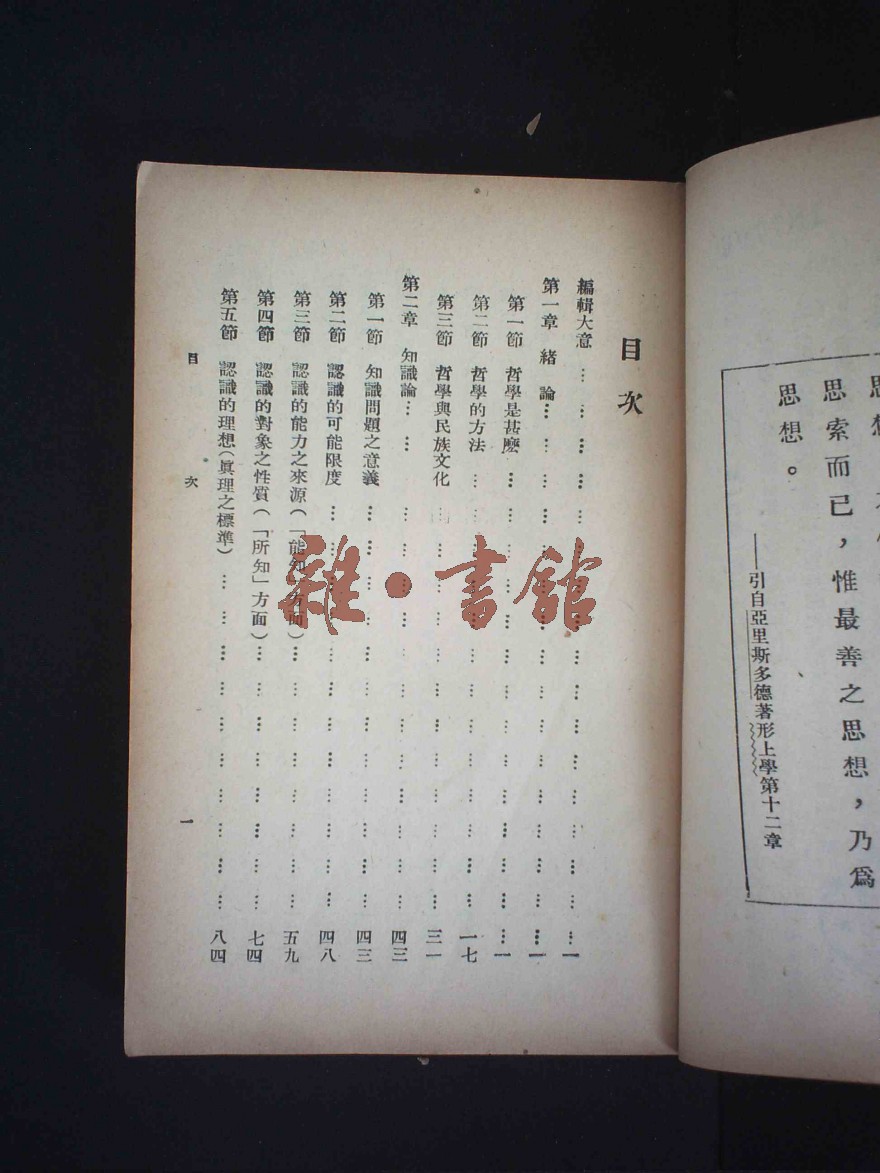 思索而已，惟最善之思想，乃爲
思想。
——引自亞里斯多德著形上學第十二章
目次
編輯大意………………………一
第一章 緒論………………………一
第一節 哲學是甚麽………………………一
第二節 哲學的方法………………………一七
第三節 哲學與民族文化………………………三一
第二章 知識論………………………四三
第一節 知識問題之意義………………………四三
第二節 認識的可能限度………………………四八
第三節 認識的能力之來源(「能知」方面)………………………五九
第四節 認識的對象之性質(「所知」方面)………………………七四
第五節 認識的理想(眞理之標準)………………………八四
目次 一
雜·書舘